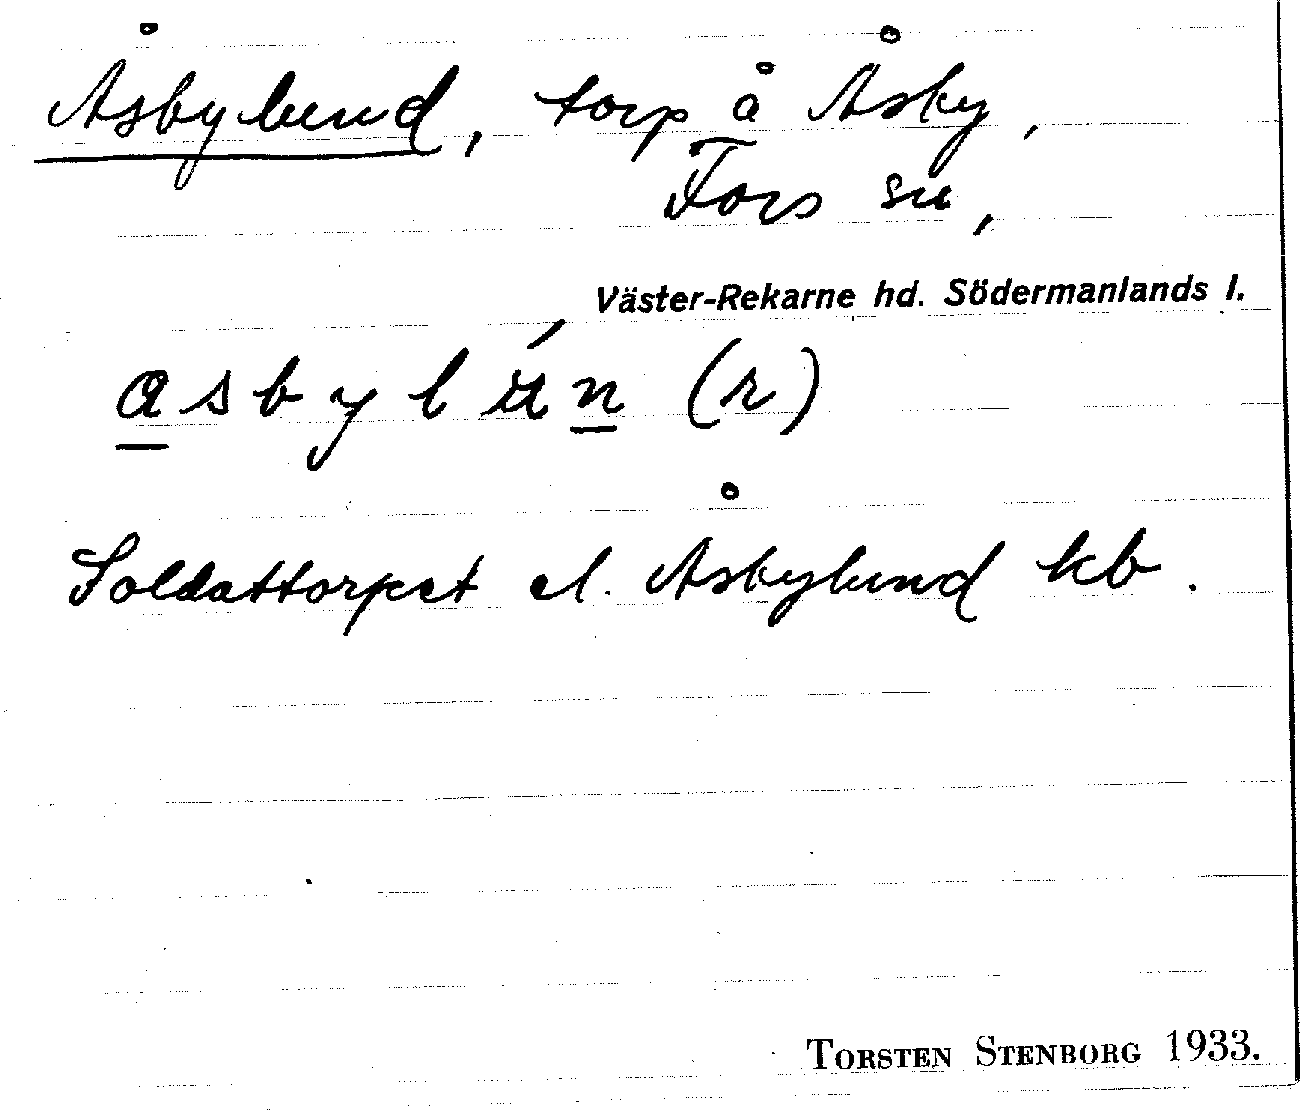 Åsbylund, torp å Åsby,
Fors sn,
Väster-Rekarne hd. Södermanlands l.
a s b y l ú n (r)
Soldattorpet el. Åsbylund kb.
TORSTEN STENBORG 1933.